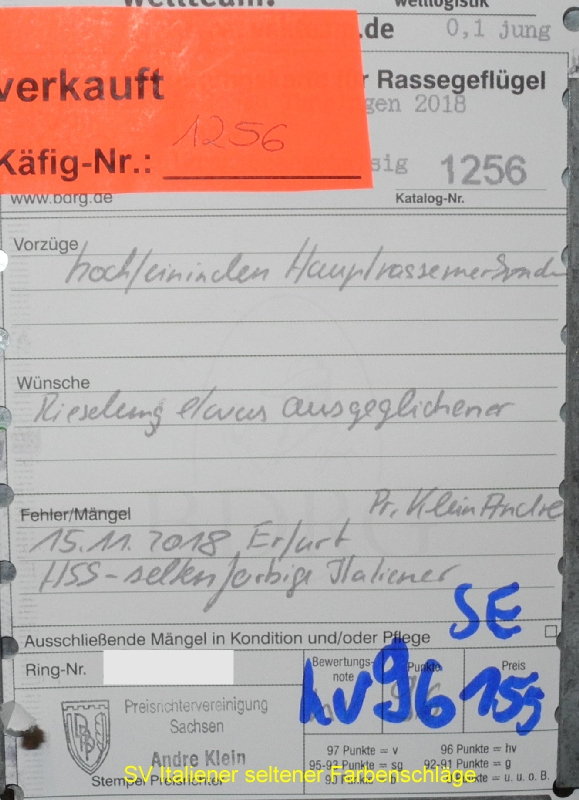 .de 0,1 jung
verkauft
für Rassegeflügel
gen 2018
1256
Käfig-Nr.:
sig 1256
www.bdrg.de Katalog-Nr.
Vorzüge
hochfein in den Hauptrassemerkmalen
Wünsche
Rieselung etwas ausgeglichener
Fehler/Mängel Pr. Klein Andre
15.11.2018 Erfurt
HSS-seltenfarbige Italiener
SE
Ausschließende Mängel in Kondition und/oder Pflege
Ring-Nr.
Bewertungs-
note
Punkte
Preis
hv 96 15,-
Preisrichtervereinigung
Sachsen
Andre Klein
Stempel Preisrichter
97 Punkte = v 96 Punkte = hv
95-93 Punkte = sg 92-91 Punkte = g
Punkte = u. u. o. B.
SV Italiener seltener Farbenschläge